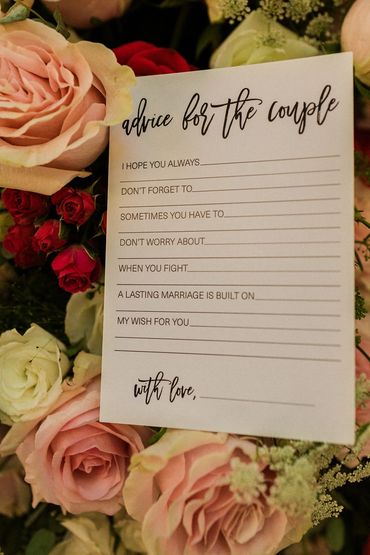 advice for the couple
I HOPE YOU ALWAYS
DON'T FORGET TO
SOMETIMES YOU HAVE TO
DON'T WORRY ABOUT
WHEN YOU FIGHT
A LASTING MARRIAGE IS BUILT ON
MY WISH FOR YOU
with love,